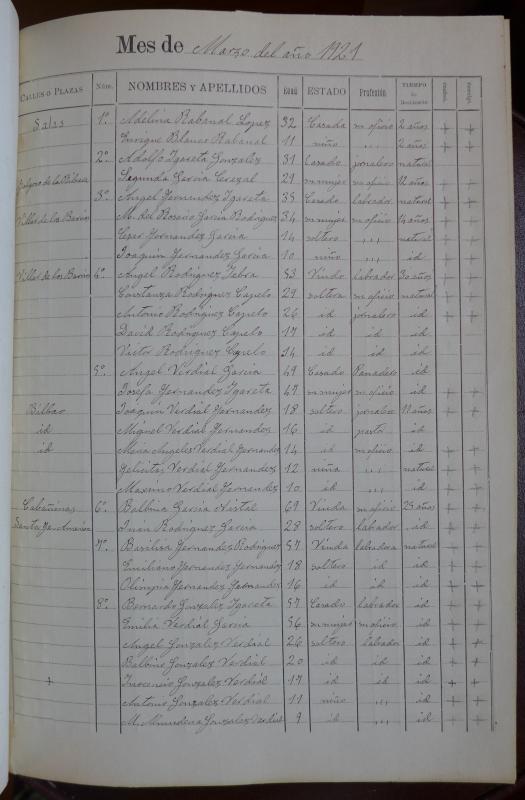 Mes de Marzo del año 1921
CALLES O PLAZAS Núm. NOMBRES Y APELLIDOS Edad ESTADO Profesión TIEMPO de Residencia
Salas 1º Adelina Rabanal Lopez 32 Casada su oficio 2 años + +
Enrique Blanco Rabanal 11 niño ,,, 2 años + +
2º Adolfo Igareta Gonzalez 31 Casado jornalero natural
Segunda Garcia Cerezal 29 su mujer su oficio 12 años + +
3º Angel Fernandez Igareta 35 Casado labrador natural + +
Villar de los Barrios M. del Rosario Garcia Rodriguez 34 su mujer su oficio 14 años + +
Cesar Fernandez Garcia 14 soltero ,,, natural + +
Joaquin Fernandez Garcia 10 niño ,,, id + +
Villar de los Barrios 4º Angel Rodriguez 53 Viudo labrador 30 años + +
Constanza Rodriguez Capelo 29 soltera su oficio natural + +
Antonio Rodriguez Capelo 26 id jornalero id + +
David Rodriguez Capelo 17 id id id
Victor Rodriguez Capelo 14 id id id
5º Angel Verdial Garcia 49 Casado Panadero id
Josefa Fernandez Igareta 47 su mujer su oficio id + +
Bilbao Joaquin Verdial Fernandez 18 soltero jornalero 11 años + +
id Miguel Verdial Fernandez 16 id id + +
id Maria Angeles Verdial Fernandez 14 id su oficio id + +
Felicitas Verdial Fernandez 12 niña ,,, natural + +
Maximo Verdial Fernandez 10 id ,,, id + +
Cabañinas 6º Balbina Garcia Nistal 69 Viuda su oficio 25 años + +
Juan Rodriguez Garcia 28 soltero labrador id + +
7º Basilisa Fernandez Rodriguez 57 Viuda labradora natural + +
Emiliano Fernandez Fernandez 18 soltero id id + +
Olimpia Fernandez Fernandez 16 id id id + +
8º Bernardo Gonzalez Igareta 57 Casado labrador id
Emilia Verdial Garcia 56 su mujer su oficio id
Angel Gonzalez Verdial 26 soltero labrador id + +
Balbino Gonzalez Verdial 20 id id id + +
+ Inocencio Gonzalez Verdial 17 id id id + +
Antonio Gonzalez Verdial 11 niño ,,, id + +
M. Almudena Gonzalez Verdial 9 id ,,, id + +